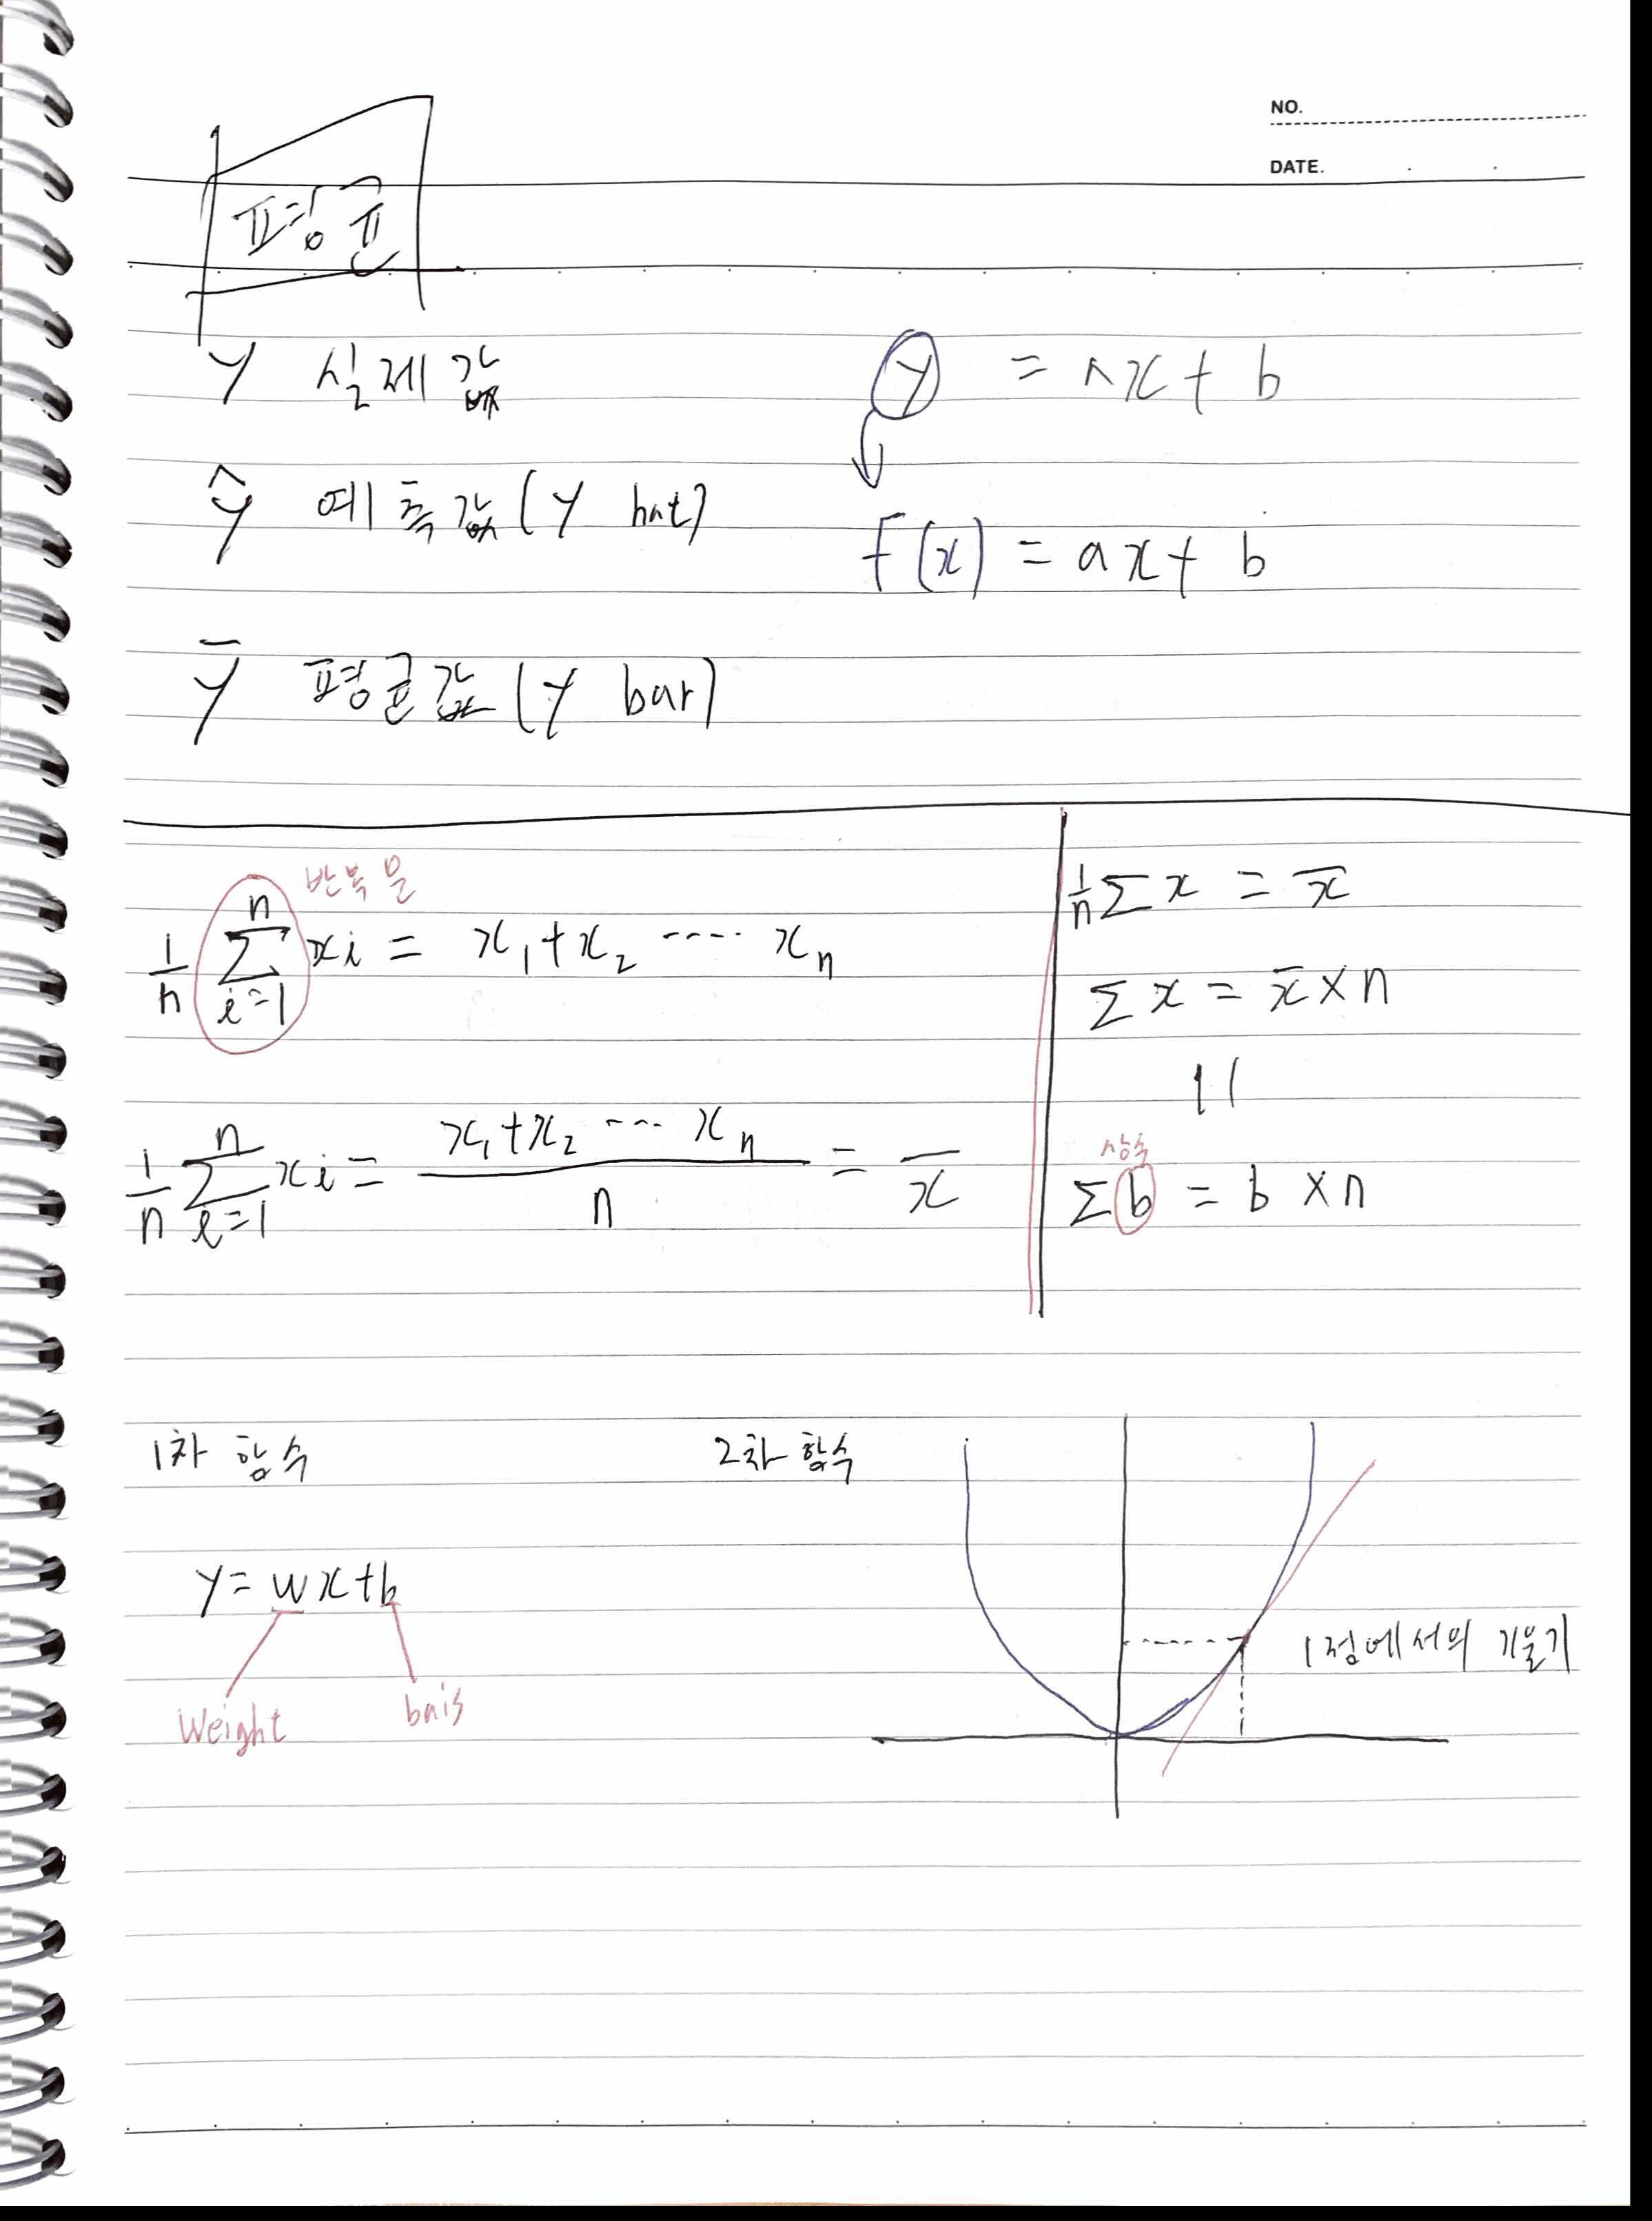 NO.
DATE.
평균
y 실제 값
y = ax + b
ŷ 예측값 (y hat)
f(x) = ax + b
ȳ 평균값 (y bar)
반복문
1/n Σ(i=1, n) xi = x₁+x₂ ····· xₙ
1/n Σ(i=1, n) xi = (x₁+x₂ ···· xₙ)/n = x̄
1/n Σ x = x̄
Σ x = x̄ × n
||
상수
Σ b = b × n
1차 함수
y = wx+b
Weight
bais
2차 함수
1점에서의 기울기